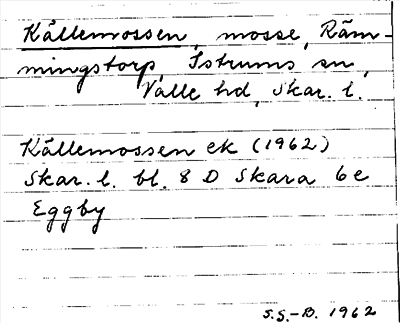 Källemossen, mosse, Räm-
mingstorp, Istrums sn,
Valle hd, Skar. l.
Källemossen ek (1962)
Skar. l. bl. 8 D Skara 6e
Eggby
S.S.-B. 1962